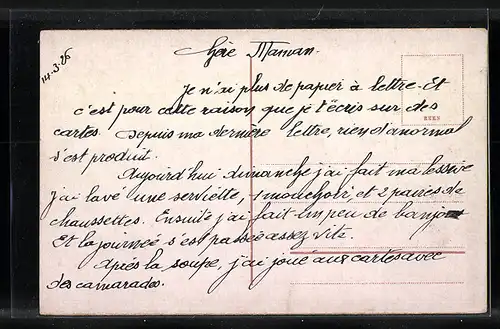 14-3-26
Chère Maman.
Je n'ai plus de papier à lettre. Et
c'est pour cette raison que je t'écris sur des
cartes. Depuis ma dernière lettre, rien d'anormal
s'est produit.
Aujourd'hui dimanche j'ai fait ma lessive
j'ai lavé une serviette, 1 mouchoir, et 2 paires de
chaussettes. Ensuite j'ai fait un peu de banjo
Et la journée s'est passée assez vite.
Après la soupe, j'ai joué aux cartes avec
des camarades.